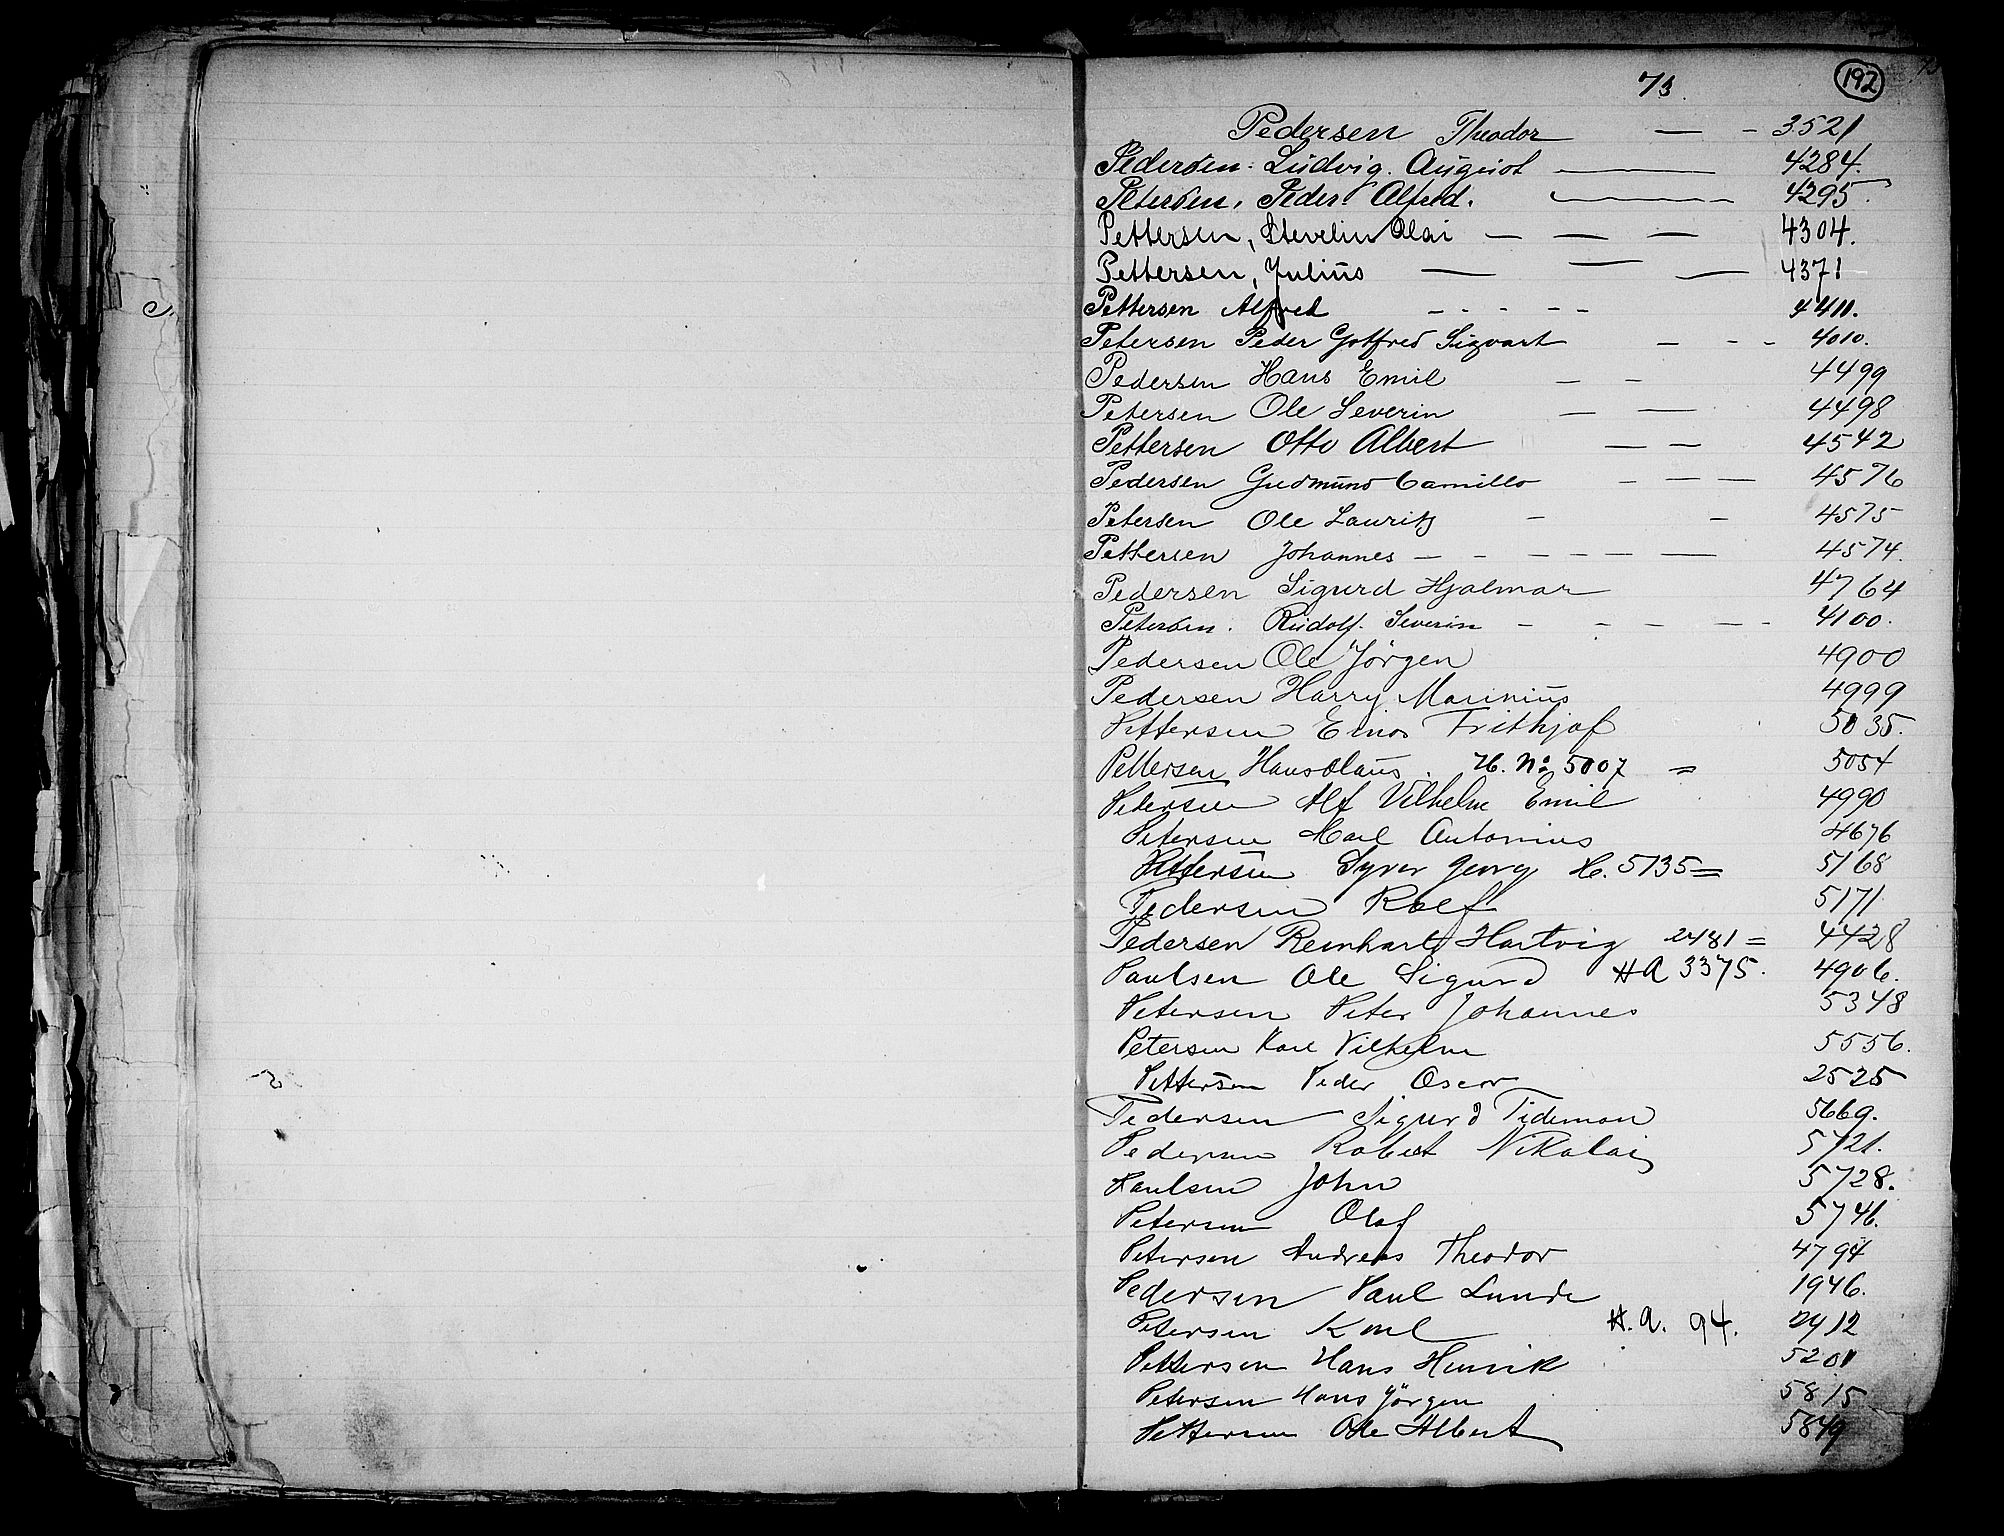 73. 192
Pedersen Theodor — - 3521
Pedersen. Ludvig. August —— 4284.
Petersen, Peder Alfred. —— 4295.
Pettersen, Stevelin Olai — — — 4304.
Pettersen, Julius — — — 4371
Pettersen Alfred - - - - - 4411.
Petersen Peder Gotfred Sigvart - - - 4010.
Pedersen Hans Emil — - 4499
Petersen Ole Severin — — 4498
Pettersen Otto Albert — — 4542
Pedersen Gudmund Camillo - — — 4576
Petersen Ole Lauritz - - 4575
Pettersen Johannes — - - - - — 4574.
Pedersen Sigurd Hjalmar 4764
Petersen. Rudolf. Severin - - - - - 4100.
Pedersen Ole Jörgen 4900
Pedersen Harry Marinius 4999
Pettersen Einar Frithjof 5035.
Pettersen Hans Olaus. H. No 5007 = 5054
Pedersen Alf Vilhelm Emil 4990
Petersen Karl Antonius 4676
Pettersen Syver Georg H. 5135 = 5168
Pedersen Rolf 5171
Pedersen Reinhart Hartvig 2481 = 4428
Paulsen Ole Sigurd H A 3375. 4906.
Petersen Peter Johannes 5348
Petersen Karl Vilhelm 5556.
Pettersen Peder Oscar 2525
Pedersen Sigurd Tideman 5669.
Pedersen Robert Nikolai 5721.
Paulsen John 5728.
Petersen Olaf 5746.
Petersen Andreas Theodor 4794
Pedersen Paul Lunde 1946.
Petersen Karl H. A. 94. 2412
Pettersen Hans Henrik 5201
Petersen Hans Jörgen 5815
Pettersen Ole Albert 5849